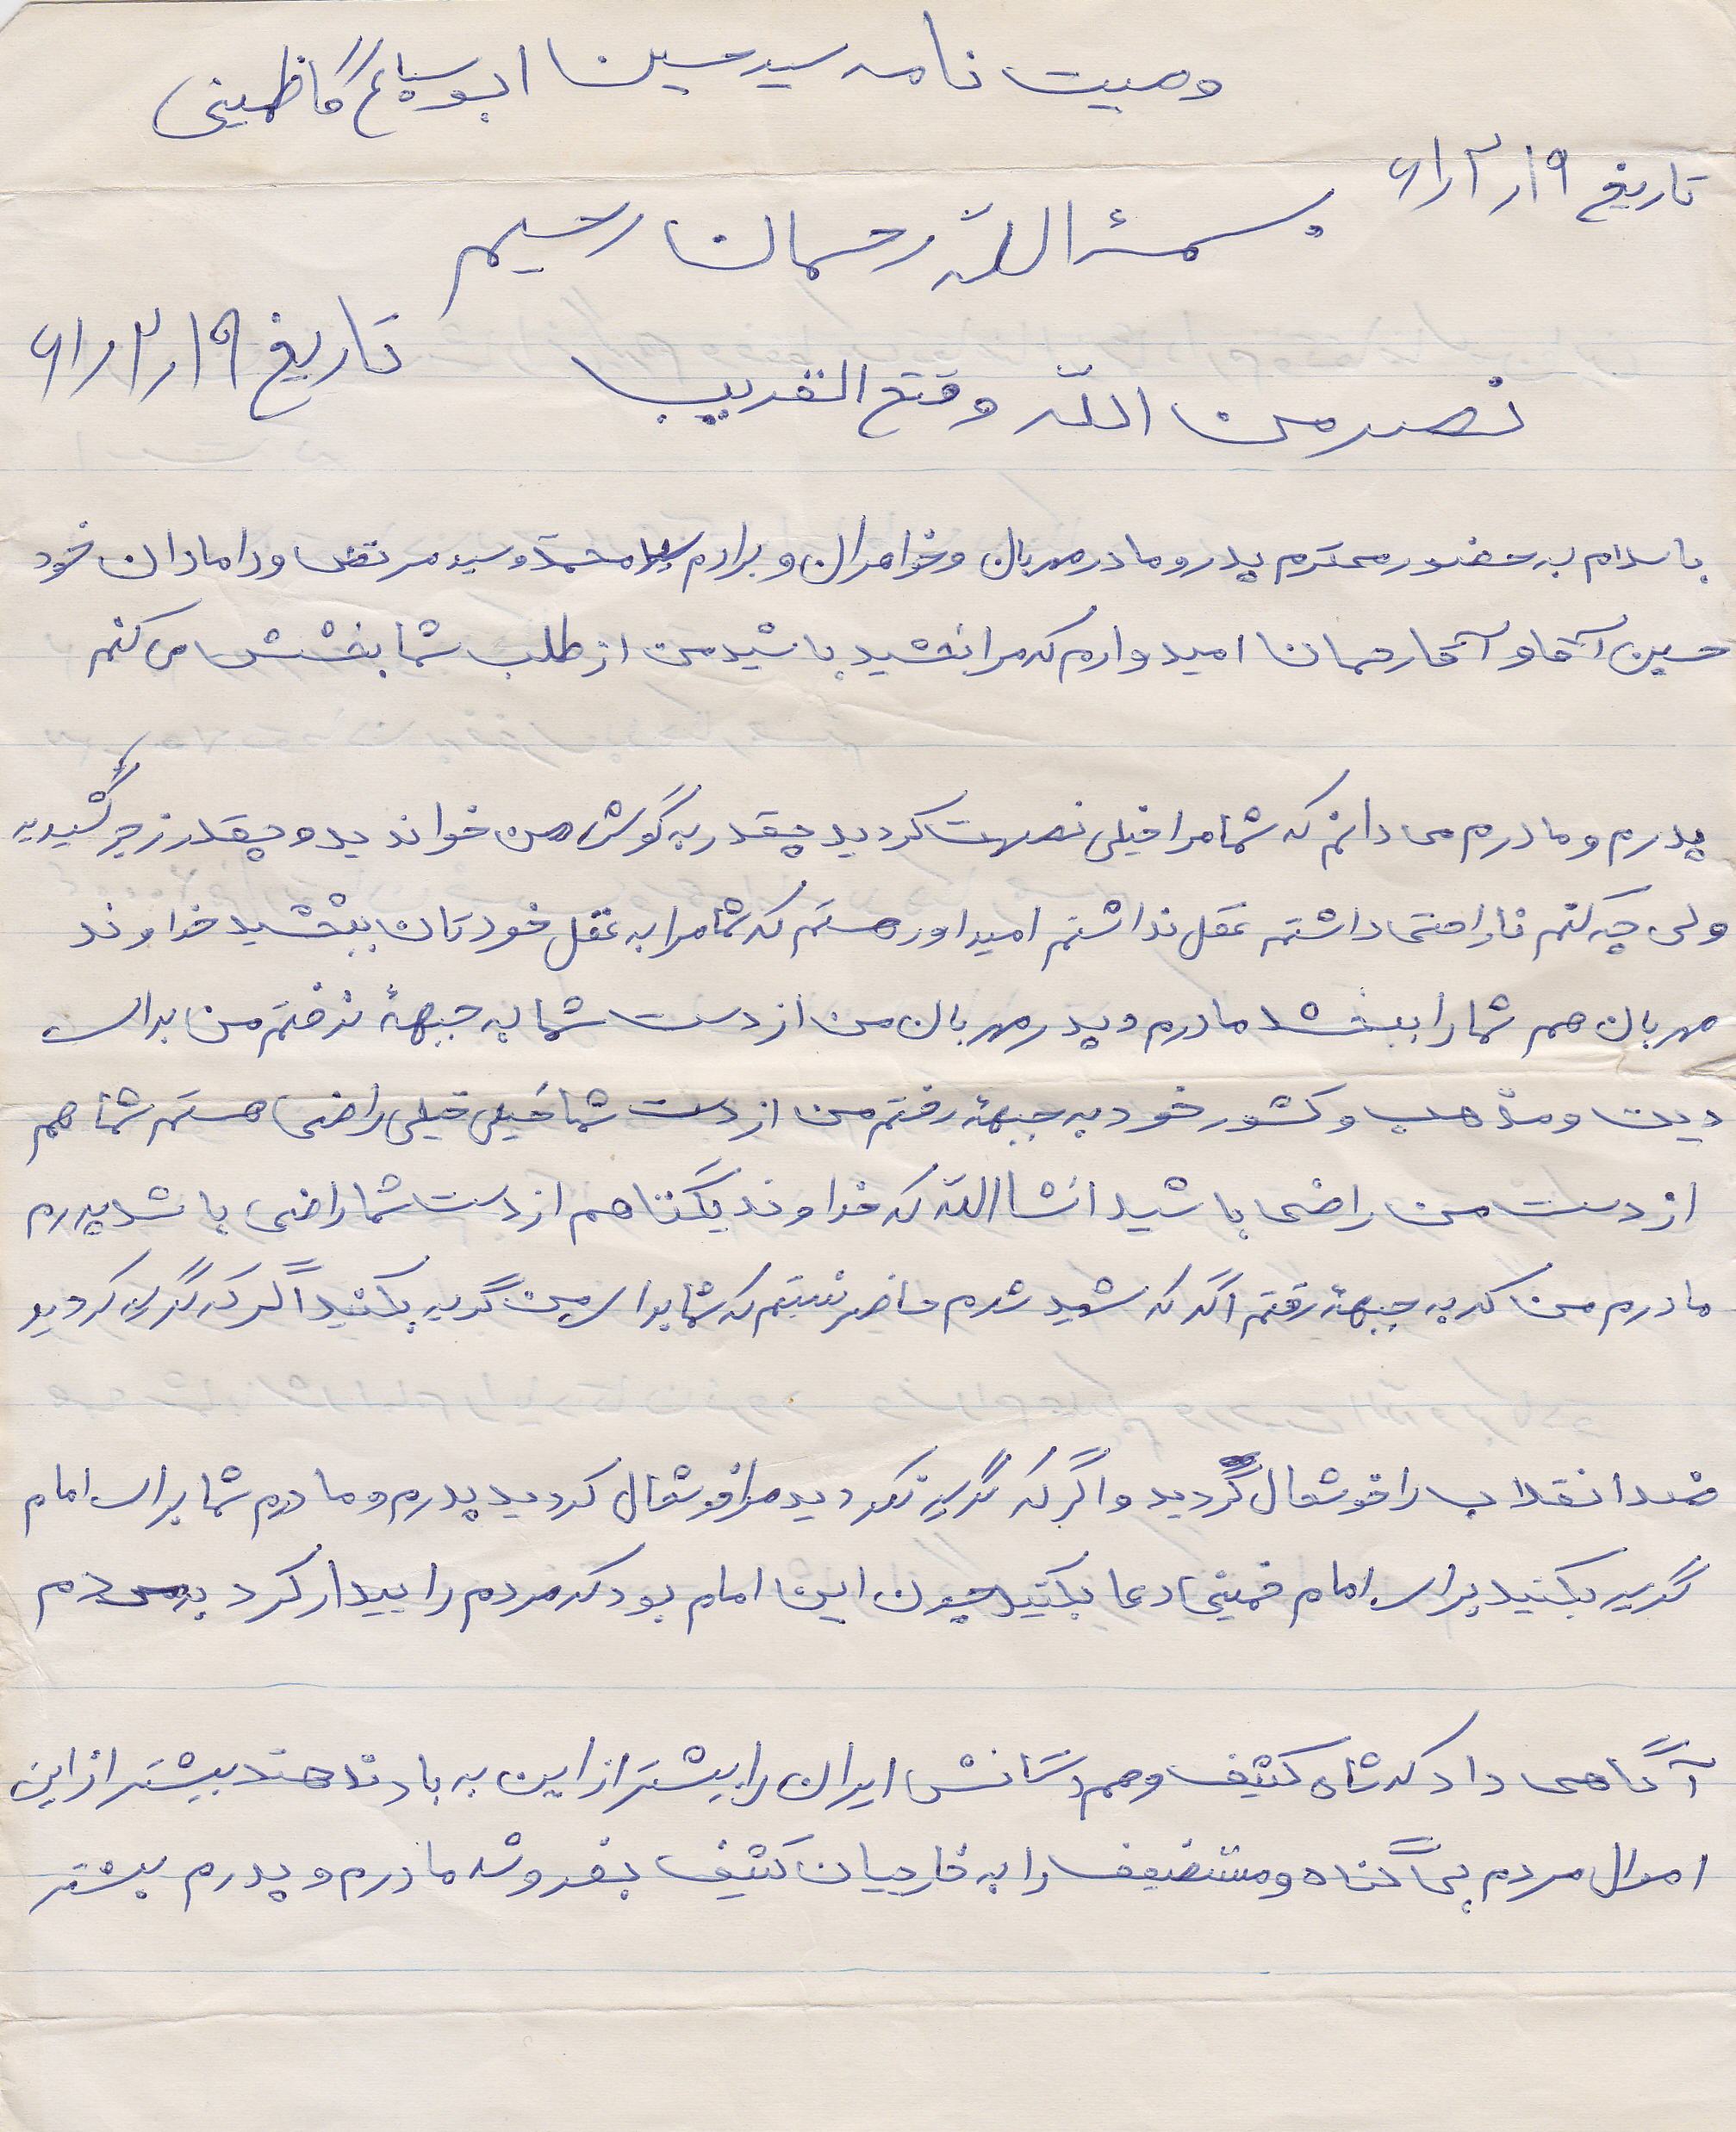 وصیت نامه سید حسین ابو سباع گاظمینی
تاریخ ۱۹ر۲ر۶۱
بسمه الله رحمان رحیم
تاریخ ۱۹ر۲ر۶۱
نصر من الله و فتح القریب
با سلام به حضور محترم پدر و مادر مهربان و خواهران و برادرم سید محمد و سید مرتضی و دامادان خود
حسین آقا و آقا رحمان امیدوارم که مرا بخشید باشید من از طلب شما بخشش می کنم
پدرم و مادرم می دانم که شما مرا خیلی نصیهت کردید چقدر به گوش من خواندید و چقدر زجر کشیدید
ولی چه کنم ناراحتی داشتم عقل نداشتم امیداور هستم که شما مرا به عقل خودتان ببخشید خداوند
مهربان هم شما را ببخشد مادرم و پدر مهربان من از دست شما به جبههٔ نرفتم من برای
دین و مذهب و کشور خود به جبههٔ رفتم من از دست شما خیلی خیلی راضی هستم شما هم
از دست من راضی باشید انشاالله که خداوند یکتا هم از دست شما راضی باشد پدرم
مادرم من که به جبههٔ رفتم اگر که شهید شدم حاضر نیستم که شما برای من گریه بکنید اگر که گریه کردید
ضد انقلاب را خوشحال کردید و اگر که گریه نکردید مرا خوشحال کردید پدرم و مادرم شما برای امام
گریه بکنید برای امام خمینی دعا بکنید چون این امام بود که مردم را بیدار کرد به مردم
آگاهی داد که شاه کثیف و همدستانش ایران را بیشتر از این به باد ندهند بیشتر از این
اموال مردم بی گناه و مستضیف را به خارجیان کثیف بفروشد مادرم و پدرم بیشتر